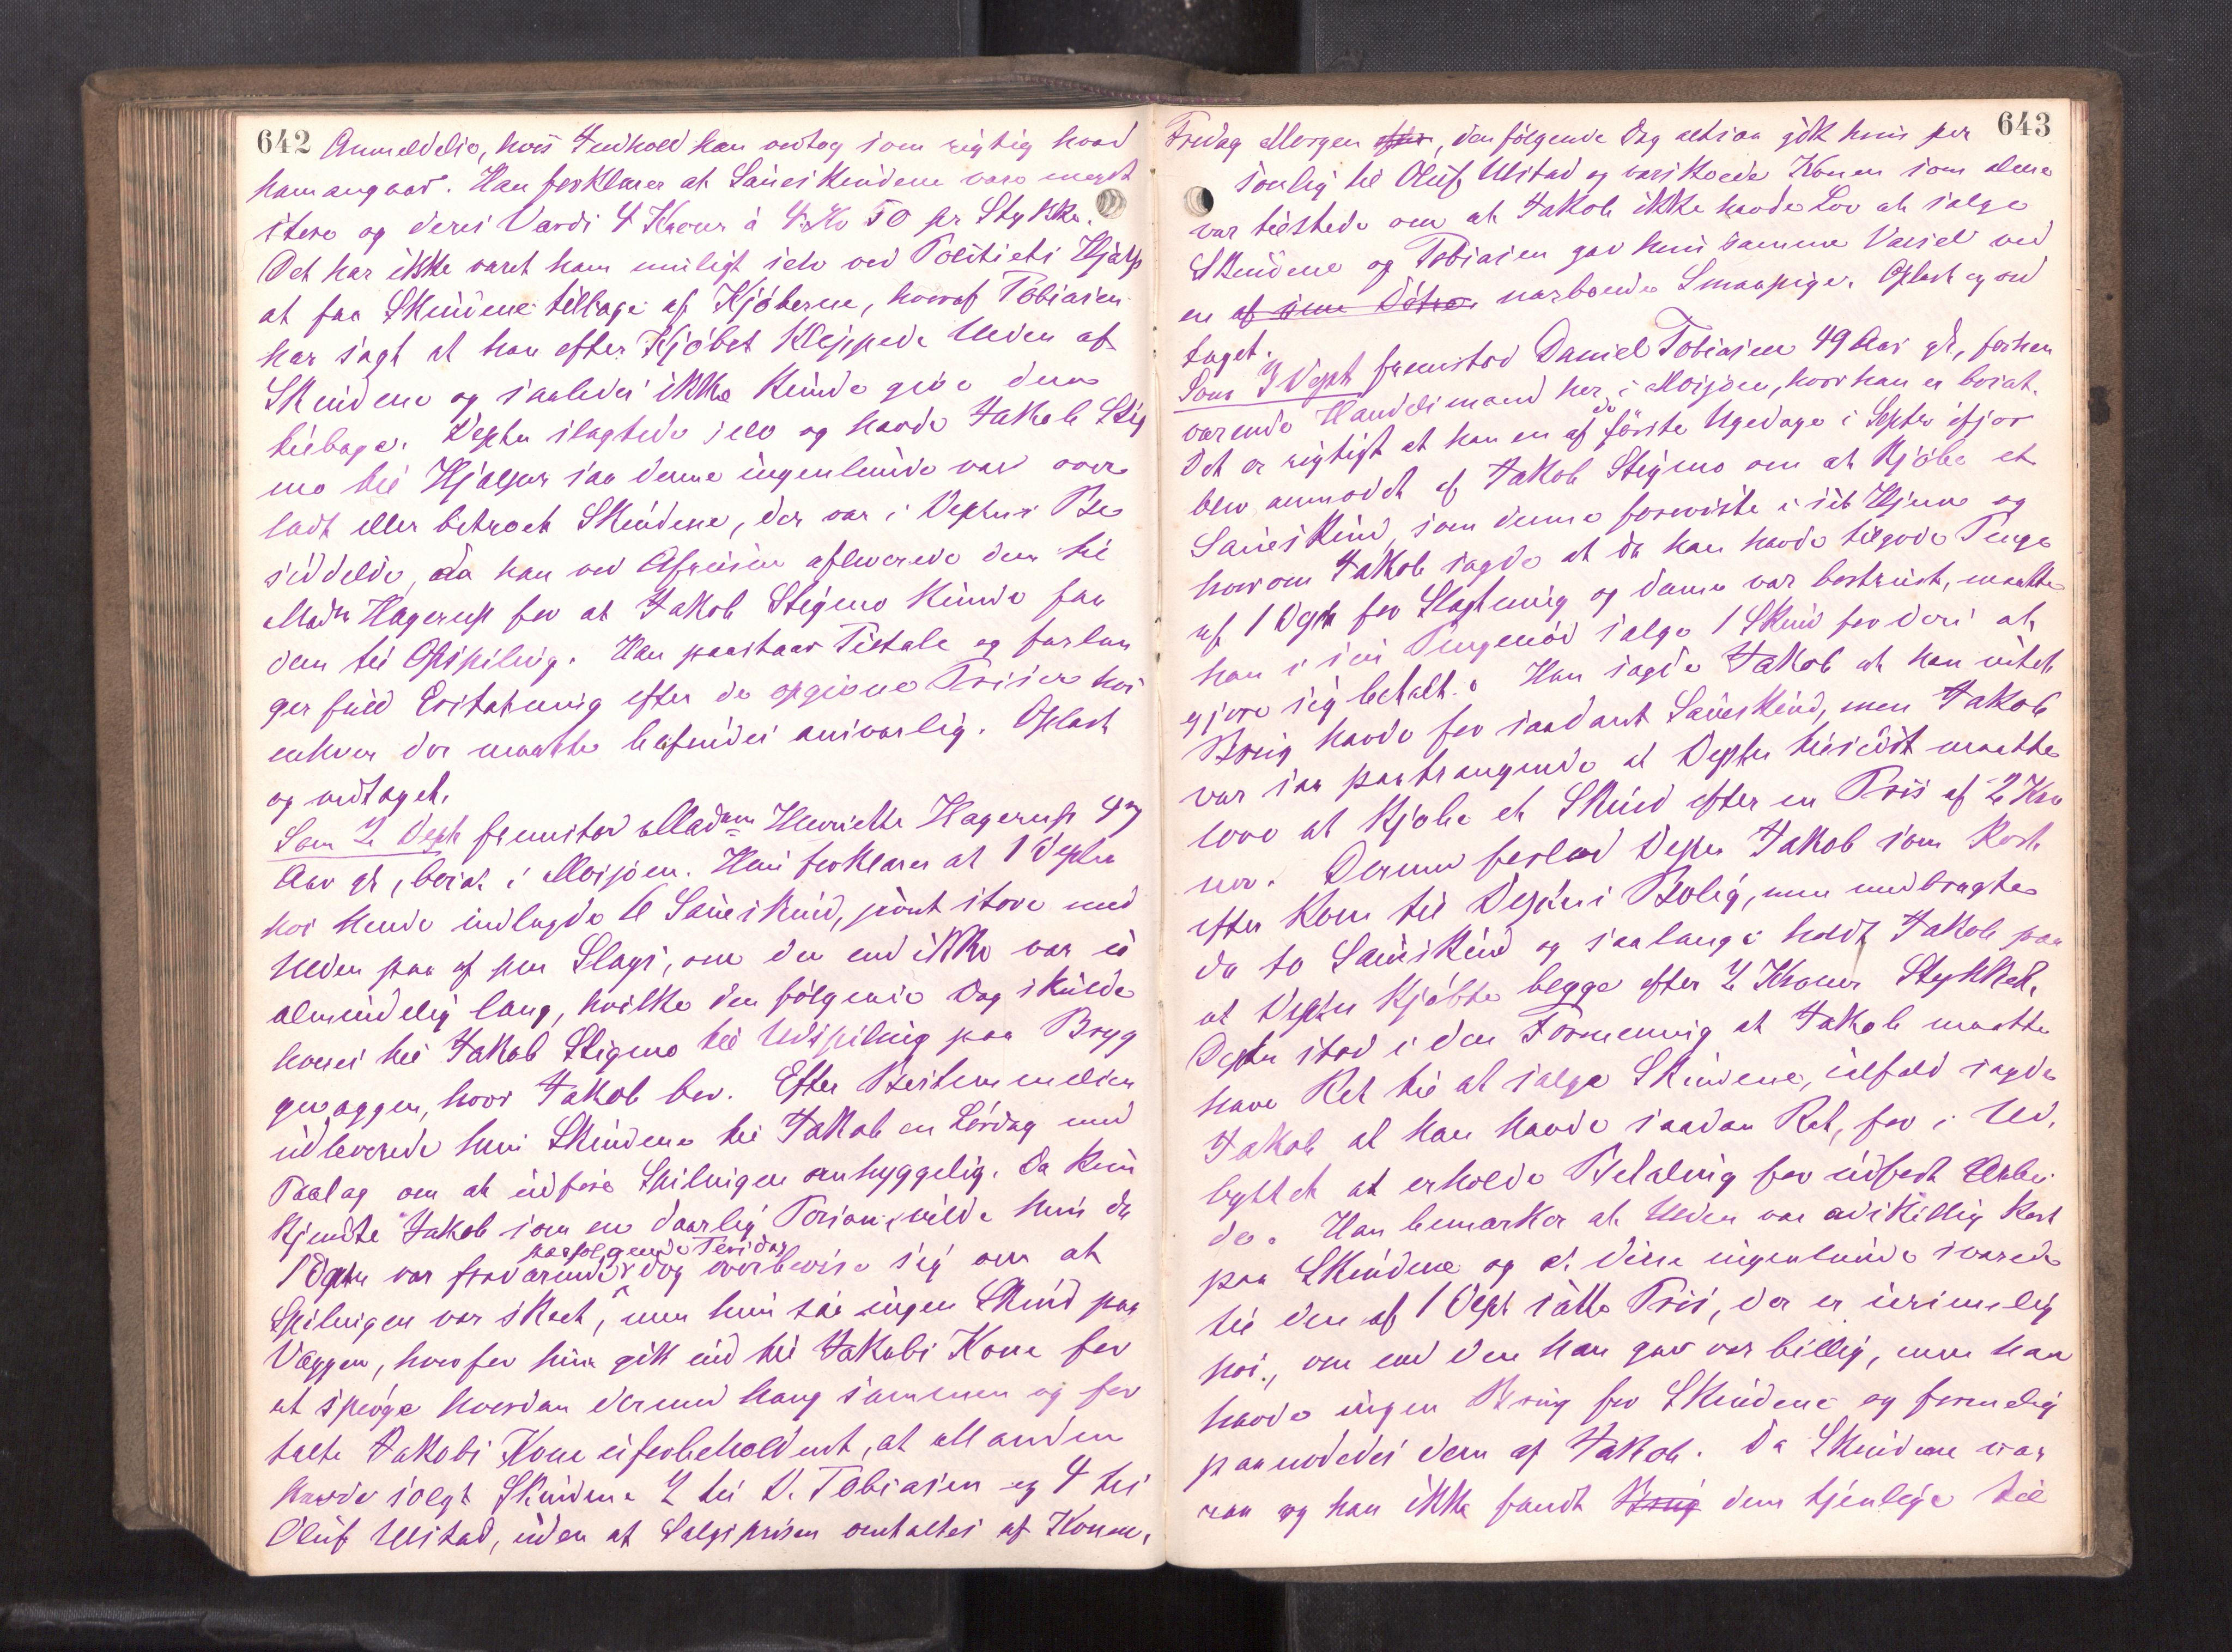 642 Anmeldelse, hvis Indhold han vedtog som rigtig hvad
ham angaar. Han forklarer at Saueskindene vare meget
store og deres Værdi 4 Kroner à 4 Kr 50 pr Stykke.
Det har ikke været ham muligt selv ved Politiets Hjælp
at faa Skindene tilbage af Kjøberne, hvoraf Tobiasen
har sagt at han efter Kjøbet klippede Ulden af
Skindene og saaledes ikke kunde give dem
tilbage. Deptn slagtede selv og havde Jakob Stig
mo til Hjælper saa denne ingenlunde var over
ladt eller betroet Skindene, der var i Deptns Be
siddelse, da han ved Afreisen afleverede dem til
Madm Hagerup for at Jakob Stigmo kunde faa
dem til Opspiling. Han paastaar Tiltale og forlan
ger fuld Erstatning efter de opgivne Priser hos
enhver der maatte befindes ansvarlig. Oplæst
og vedtaget.
Som 2 Dept fremstod Madam Henriette Hagerup 47
Aar gl, bosat i Mosjøen. Hun forklarer at 1 Deptn
hos hende indlagde 6 Saueskind, jevnt store med
Ulden paa af pen Slags, om den end ikke var u
almindelig lang, hvilke den følgende Dag skulde
hentes til Jakob Stigmo til Udspiling paa Brygg
gevæggen, hvor Jakob bor. Efter Bestemmelsen
udleverede hun Skindene til Jakob en Lørdag med
Paalæg om at udføre Spilingen omhyggelig. Da hun
kjendte Jakob som en daarlig Person, vilde hun da
1 Deptn var fraværende paafølgende Tirsdag dog overbevise sig om at
Spilingen var skeet, men hun saa ingen Skind paa
Væggen, hvorfor hun gik ind til Jakobs Kone for
at spørge hvordan dermed hang sammen og for
talte Jakobs Kone uforbeholdent, at Manden
havde solgt Skindene 2 til D. Tobiasen og 4 til
Oluf Ulstad, uden at Salgsprisen omtaltes af Konen.
643
Fredag Morgen, den følgende Dag altsaa gik hun per
sonlig til Oluf Ulstad og varskoede Konen som alene
var tilstede om at Jakob ikke havde Lov at sælge
Skindene og Tobiasen gav hun samme Varsel ved
en af sine Døtre nærboende Smaapiger. Oplæst og ved
taget.
Som 3 Dept fremstod Daniel Tobiasen 49 Aar gl, forhen
værende Handelsmand her i Mosjøen, hvor han er bosat.
Det er rigtigt at han en af de første Ugedage i Septbr ifjor
blev anmodet af Jakob Stigmo om at kjøbe et
Saueskind, som denne foreviste i sit Hjem og
hvorom Jakob sagde at da han havde tilgode Penge
af 1 Deptn for Slagtning og denne var bortreist, maatte
han i sin Pengenød sælge 1 Skind for deri at
gjøre sig betalt. Han sagde Jakob at han intet
Brug havde for saadant Saueskind, men Jakob
var saa paatrængende at Deptn tilsidst maatte
love at kjøbe et Skind efter en Pris af 2 Kro
ner. Dermed forlod Deptn Jakob som kort
efter kom til Deptns Bolig, men medbragte
da to Saueskind og saalænge holdt Jakob paa
at Deptn kjøbte begge efter 2 Kroner Stykket.
Deptn stod i den Formening at Jakob maatte
have Ret til at sælge Skindene, ialfald sagde
Jakob at han havde saadan Ret, for i Ud.
byttet at erholde Betaling for udført Arbei
de. Han bemærker at Ulden var adskillig kort
paa Skindene og at disse ingenlunde svarede
til den af 1 Dept satte Pris, der er urimelig
høi, om end den han gav var billig, men han
havde ingen Brug for Skindene og formelig
paanødedes dem af Jakob. Da Skindene var
raa og han ikke fandt Brug dem tjenlige til